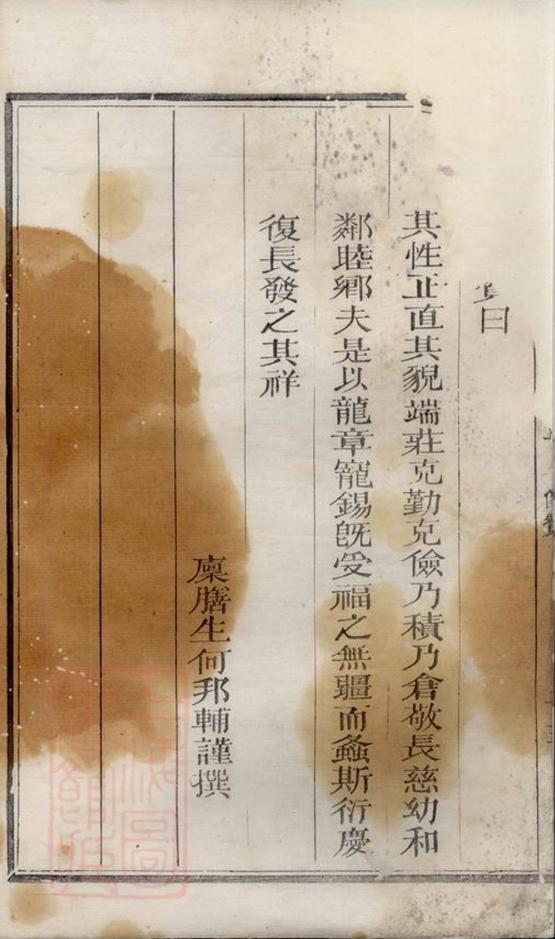 曰
其性正直其貌端莊克勤克儉乃積乃倉敬長慈幼和
鄰睦鄉夫是以龍章寵錫既受福之無疆而螽斯衍慶
復長發之其祥
廩膳生何邦輔謹撰